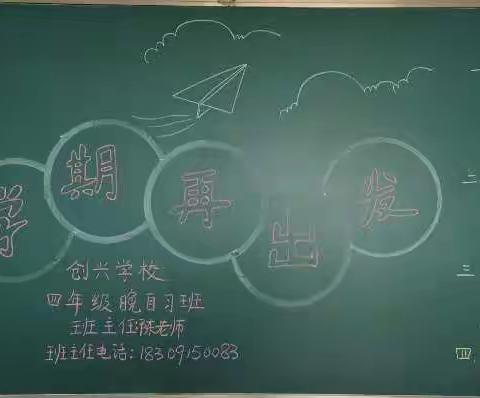 学期再出发
创兴学校
四年级晚自习班
班主任:陈老师
班主任电话:18309150083
二
三
四.